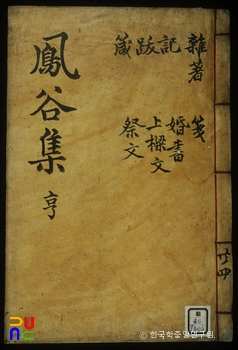 鳳谷集 亨
雜著 記 跋 箴
箋 婚書 上樑文 祭文
共四
ⓒ 한국학중앙연구원